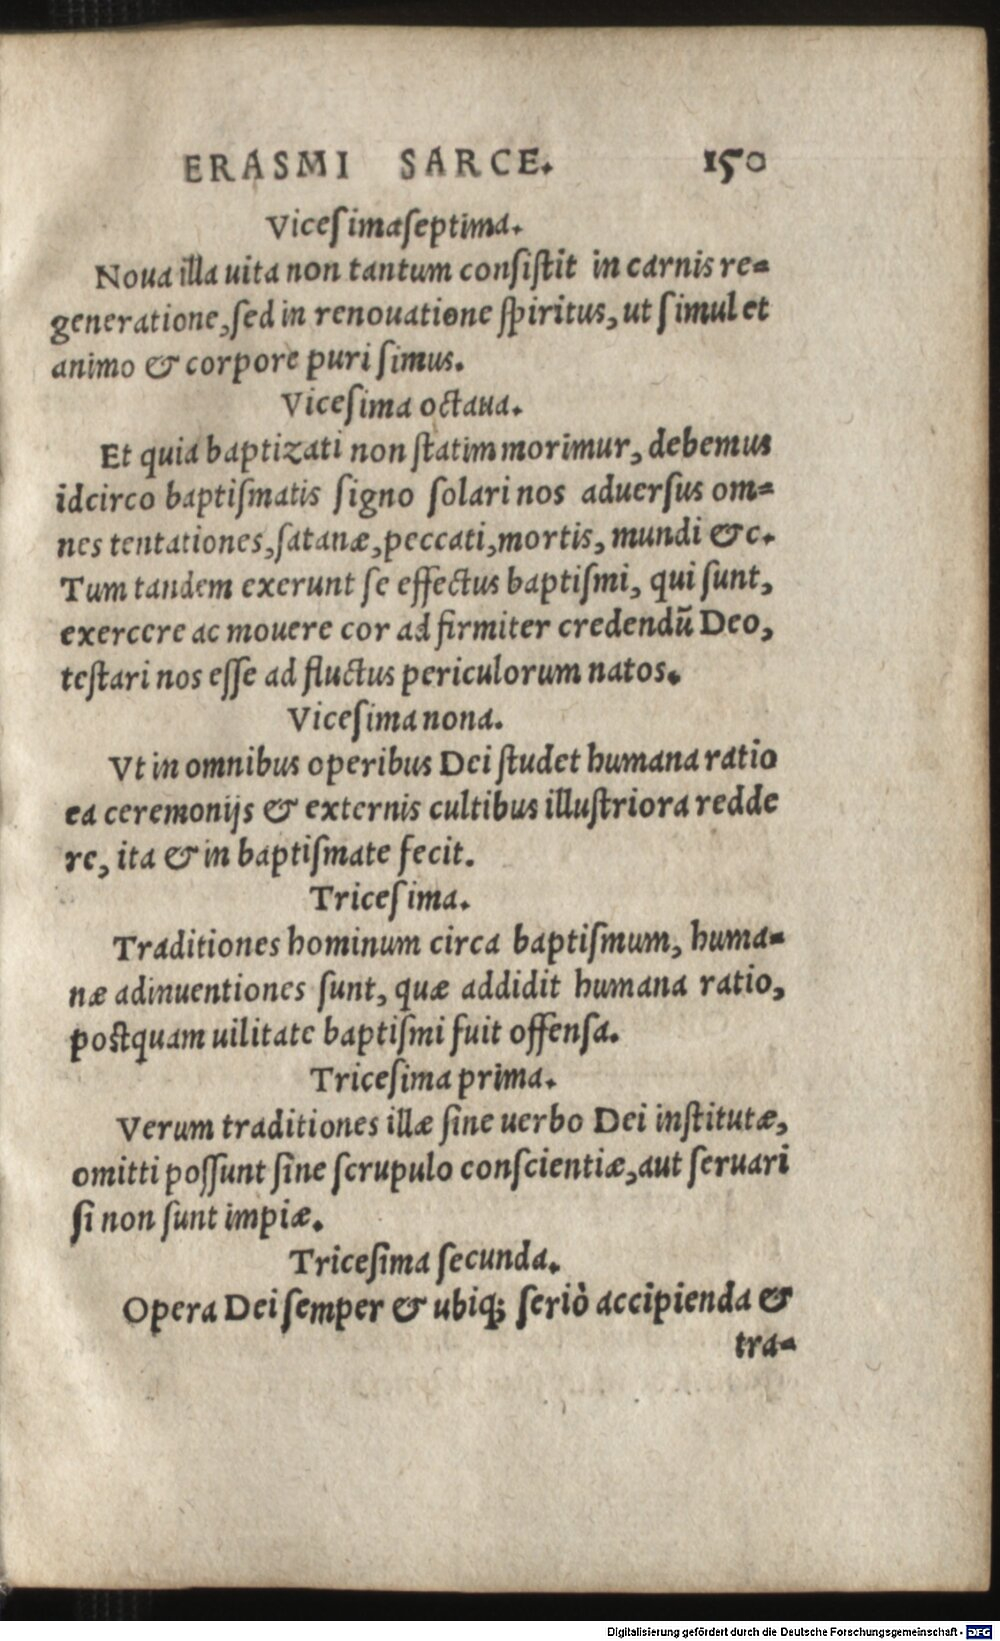 ERASMI SARCE. 150
Viceſimaſeptima.
Noua illa uita non tantum conſiſtit in carnis re-
generatione, ſed in renouatione ſpiritus, ut ſimul et
animo & corpore puri ſimus.
Viceſima octaua.
Et quia baptizati non ſtatim morimur, debemus
idcirco baptiſmatis ſigno ſolari nos aduerſus om-
nes tentationes, ſatanæ, peccati, mortis, mundi &c.
Tum tandem exerunt ſe effectus baptiſmi, qui ſunt,
exercere ac mouere cor ad firmiter credendū Deo,
teſtari nos eſſe ad fluctus periculorum natos.
Viceſima nona.
Vt in omnibus operibus Dei ſtudet humana ratio
ea ceremonijs & externis cultibus illuſtriora redde
re, ita & in baptiſmate fecit.
Triceſima.
Traditiones hominum circa baptiſmum, huma-
næ adinuentiones ſunt, quæ addidit humana ratio,
poſtquam uilitate baptiſmi fuit offenſa.
Triceſima prima.
Verum traditiones illæ ſine uerbo Dei inſtitutæ,
omitti poſſunt ſine ſcrupulo conſcientiæ, aut ſeruari
ſi non ſunt impiæ.
Triceſima ſecunda.
Opera Dei ſemper & ubiq; ſeriò accipienda &
tra-
Digitalisierung gefördert durch die Deutsche Forschungsgemeinschaft - DFG